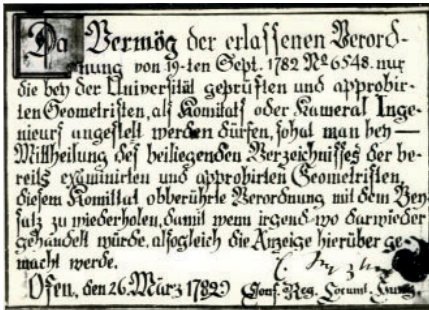 Da Vermög der erlassenen Verord-
nung von 19-ten Sept. 1782 No 6548. nur
die bey der Universität geprüften und approbir-
ten Geometristen, als Komitats oder Kameral Inge-
nieurs angestelt werden dürfen, so hat man bey —
Mittheilung des beiliegenden Verzeichnisses der be-
reits examinirten und approbirten Geometristen,
diesem Komittat obberührte Verordnung mit dem Bey-
satz zu wiederholen, damit wenn irgend wo darwieder
gehandelt würde, alsogleich die Anzeige hierüber ge-
macht werde.
Ofen, den 26. März 1789
Cons. Reg. Locumt. Hung.